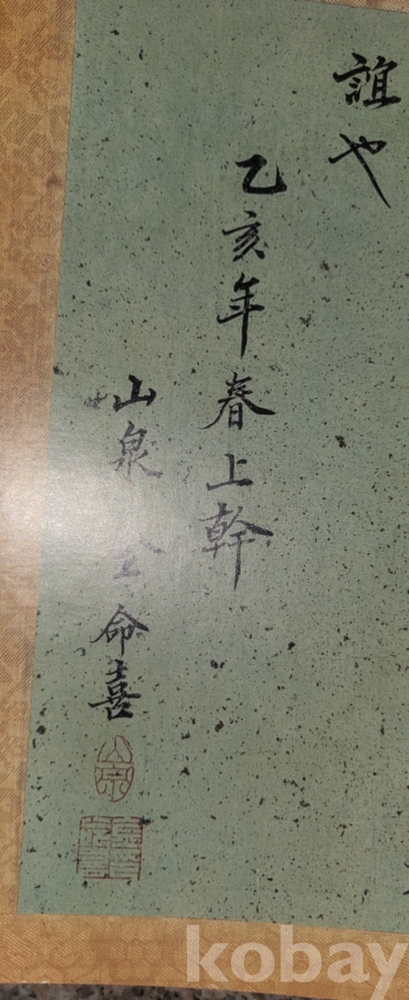 誼也
乙亥年春上幹
山泉金命喜
kobay